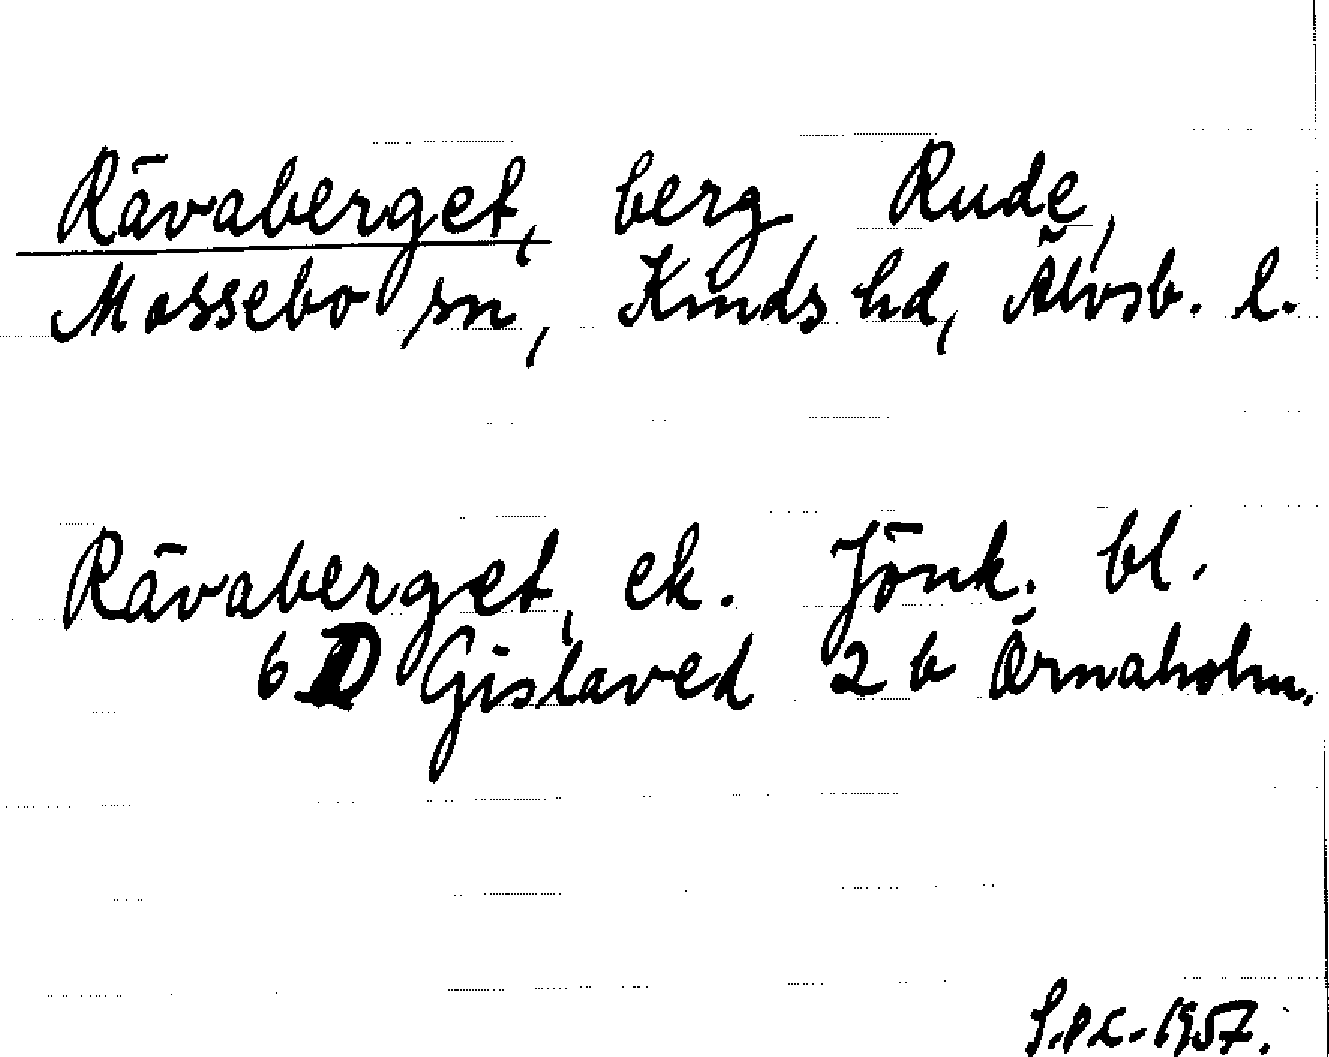 Rävaberget, berg, Rude,
Mossebo sn, Kinds hd, Älvsb. l.
Rävaberget, ek. Jönk. bl.
6 D Gislaved 2 b Örnaholm.
1957.